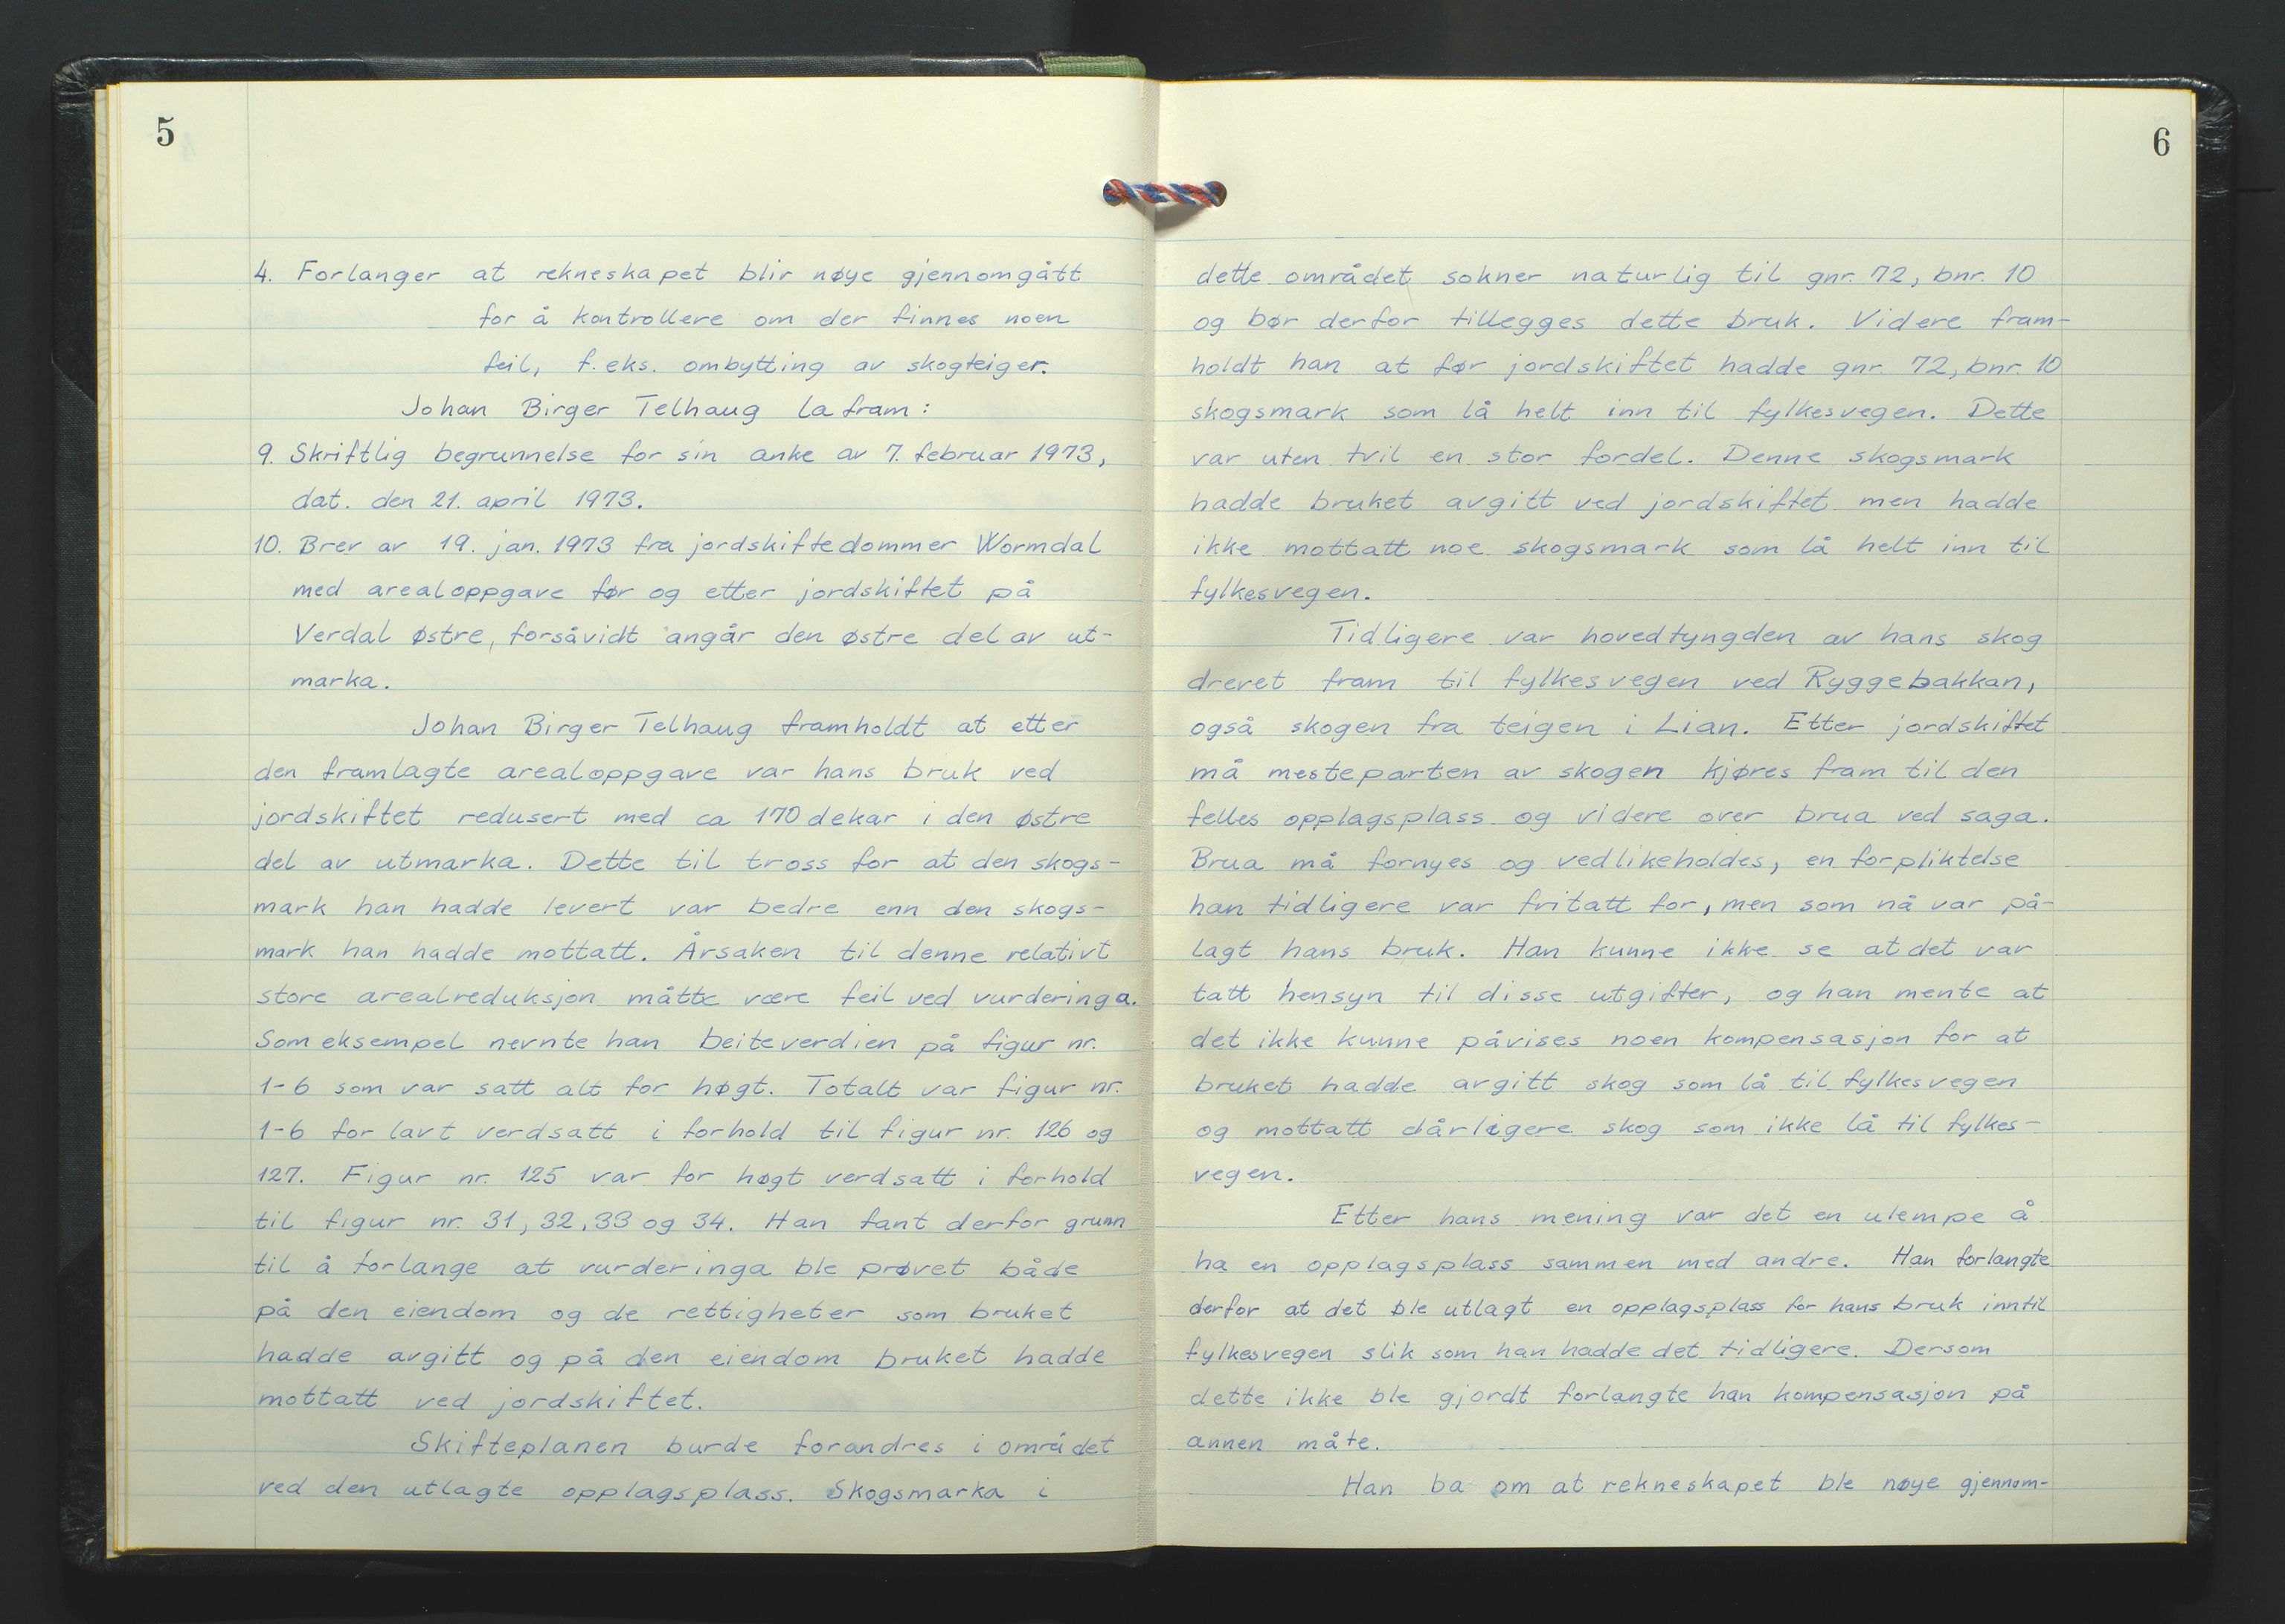 5
4. Forlanger at rekneskapet blir nøye gjennomgått
for å kontrollere om der finnes noen
feil, f.eks. ombytting av skogteiger.
Johan Birger Telhaug la fram:
9. Skriftlig begrunnelse for sin anke av 7. februar 1973,
dat. den 21. april 1973.
10. Brev av 19. jan. 1973 fra jordskiftedommer Wormdal
med arealoppgave før og etter jordskiftet på
Verdal østre, forsåvidt angår den østre del av ut-
marka.
Johan Birger Telhaug framholdt at etter
den framlagte arealoppgave var hans bruk ved
jordskiftet redusert med ca 170 dekar i den østre
del av utmarka. Dette til tross for at den skogs-
mark han hadde levert var bedre enn den skogs-
mark han hadde mottatt. Årsaken til denne relativt
store arealreduksjon måtte være feil ved vurderinga.
Som eksempel nevnte han beiteverdien på figur nr.
1-6 som var satt alt for høgt. Totalt var figur nr.
1-6 for lavt verdsatt i forhold til figur nr. 126 og
127. Figur nr. 125 var for høgt verdsatt i forhold
til figur nr. 31, 32, 33 og 34. Han fant derfor grunn
til å forlange at vurderinga ble prøvet både
på den eiendom og de rettigheter som bruket
hadde avgitt og på den eiendom bruket hadde
mottatt ved jordskiftet.
Skifteplanen burde forandres i området
ved den utlagte opplagsplass. Skogsmarka i
6
dette området sokner naturlig til gnr. 72, bnr. 10
og bør derfor tillegges dette bruk. Videre fram-
holdt han at før jordskiftet hadde gnr. 72, bnr. 10
skogsmark som lå helt inn til fylkesvegen. Dette
var uten tvil en stor fordel. Denne skogsmark
hadde bruket avgitt ved jordskiftet men hadde
ikke mottatt noe skogsmark som lå helt inn til
fylkesvegen.
Tidligere var hovedtyngden av hans skog
drevet fram til fylkesvegen ved Ryggebakkan,
også skogen fra teigen i Lian. Etter jordskiftet
må mesteparten av skogen kjøres fram til den
felles opplagsplass og videre over brua ved saga.
Brua må fornyes og vedlikeholdes, en forpliktelse
han tidligere var fritatt for, men som nå var på-
lagt hans bruk. Han kunne ikke se at det var
tatt hensyn til disse utgifter, og han mente at
det ikke kunne påvises noen kompensasjon for at
bruket hadde avgitt skog som lå til fylkesvegen
og mottatt dårligere skog som ikke lå til fylkes-
vegen.
Etter hans mening var det en ulempe å
ha en opplagsplass sammen med andre. Han forlangte
derfor at det ble utlagt en opplagsplass for hans bruk inntil
fylkesvegen slik som han hadde det tidligere. Dersom
dette ikke ble gjordt forlangte han kompensasjon på
annen måte.
Han ba om at rekneskapet ble nøye gjennom-